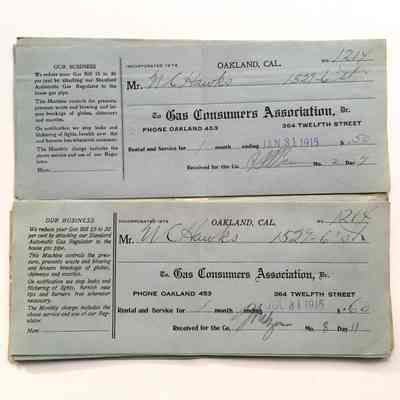 OUR BUSINESS
We reduce your Gas Bill 15 to 30
per cent by attaching our Standard
Automatic Gas Regulator to the
house gas pipe.
This Machine controls the pressure,
prevents waste and blowing and
breakage of globes, chimneys
and mantles.
On notification we stop leaks and
flickering of lights, furnish new
tips and burners free whenever
necessary.
The Monthly charge includes the
phone service and use of our Regulator.
Mem
INCORPORATED 1878 OAKLAND, CAL. No. 1214
Mr. W C Hawks 1529-6" St
To Gas Consumers Association, Dr.
PHONE OAKLAND 453 364 TWELFTH STREET
Rental and Service for 1 month ending JAN 31 1915 $ .50
Received for the Co. No. 2 Day 9
OUR BUSINESS
We reduce your Gas Bill 15 to 30
per cent by attaching our Standard
Automatic Gas Regulator to the
house gas pipe.
This Machine controls the pressure,
prevents waste and blowing
and breakage of globes,
chimneys and mantles.
On notification we stop leaks and
flickering of lights, furnish new
tips and burners free whenever
necessary.
The Monthly charge includes the
phone service and use of our Regulator.
Mem
INCORPORATED 1878 OAKLAND, CAL. No. 1214
Mr. W C Hawks 1529-6" St
To Gas Consumers Association, Dr.
PHONE OAKLAND 453 364 TWELFTH STREET
Rental and Service for 1 month ending JUL 31 1915 $
Received for the Co. Mo. 8 Day 11